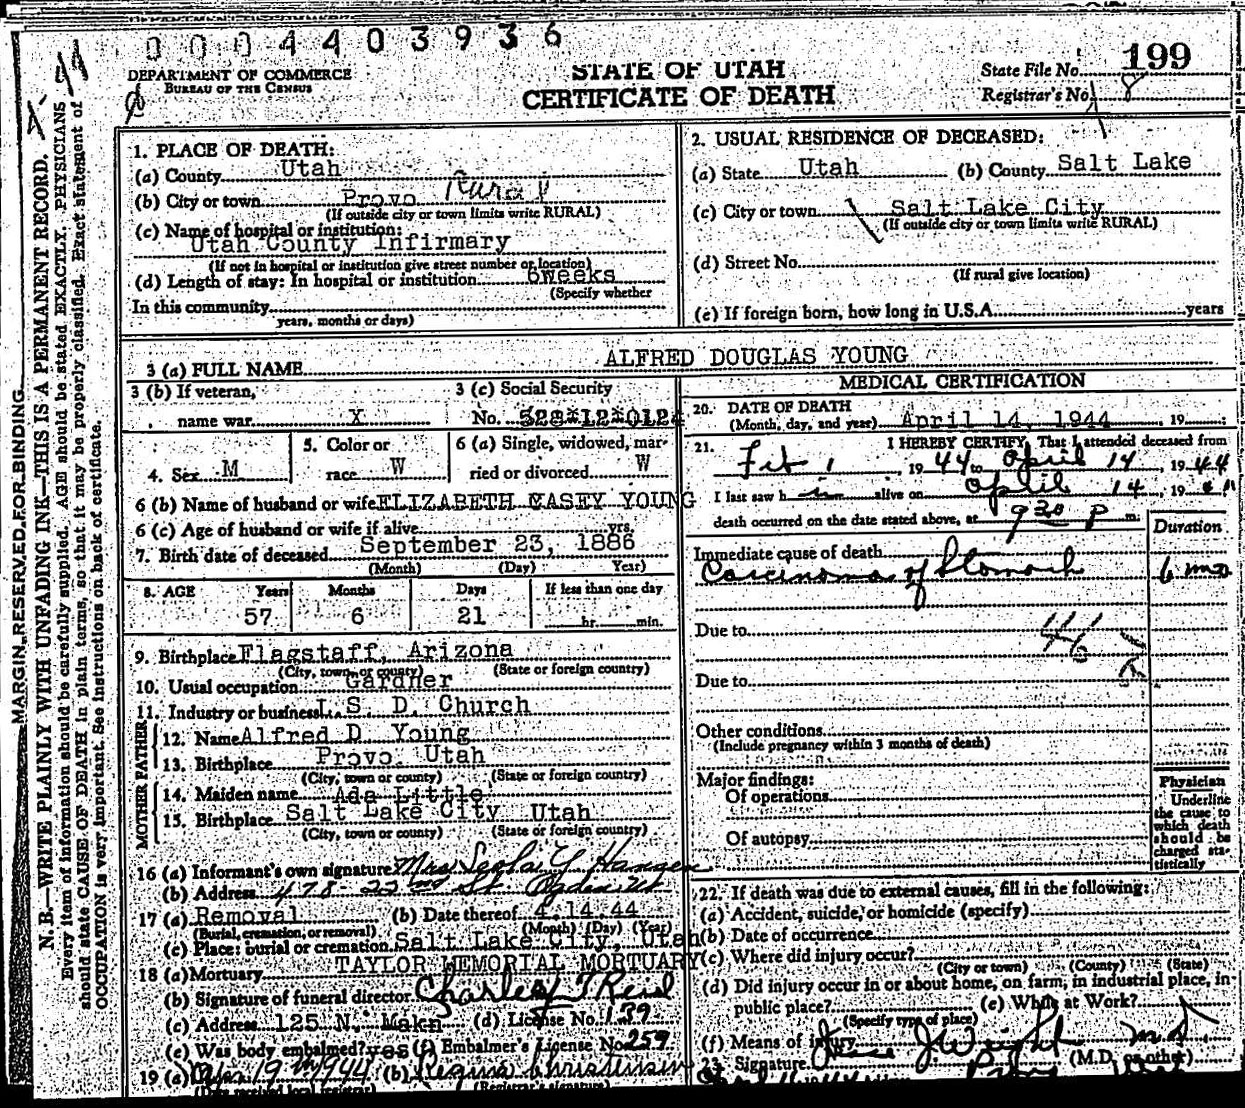 0004403936
DEPARTMENT OF COMMERCE
BUREAU OF THE CENSUS
STATE OF UTAH
CERTIFICATE OF DEATH
State File No. 199
Registrar's No. 8
MARGIN RESERVED FOR BINDING
N. B.—WRITE PLAINLY WITH UNFADING INK—THIS IS A PERMANENT RECORD.
Every item of information should be carefully supplied. AGE should be stated EXACTLY. PHYSICIANS
should state CAUSE OF DEATH in plain terms, so that it may be properly classified. Exact statement of
OCCUPATION is very important. See instructions on back of certificate.
1. PLACE OF DEATH:
(a) County Utah
(b) City or town Provo Rural
(If outside city or town limits write RURAL)
(c) Name of hospital or institution:
Utah County Infirmary
(If not in hospital or institution give street number or location)
(d) Length of stay: In hospital or institution 6weeks
(Specify whether
In this community
years, months or days)
2. USUAL RESIDENCE OF DECEASED:
(a) State Utah (b) County Salt Lake
(c) City or town Salt Lake City
(If outside city or town limits write RURAL)
(d) Street No.
(If rural give location)
(e) If foreign born, how long in U.S.A. years
3 (a) FULL NAME ALFRED DOUGLAS YOUNG
3 (b) If veteran,
name war X
3 (c) Social Security
No. 528*12*0124
4. Sex M
5. Color or
race W
6 (a) Single, widowed, mar-
ried or divorced W
6 (b) Name of husband or wife ELIZABETH CASEY YOUNG
6 (c) Age of husband or wife if alive yrs.
7. Birth date of deceased September 23, 1886
(Month) (Day) Year)
8. AGE Years Months Days If less than one day
57 6 21 hr. min.
9. Birthplace Flagstaff, Arizona
(City, town, or county) (State or foreign country)
10. Usual occupation Gardner
11. Industry or business L. S. D. Church
FATHER
12. Name Alfred D. Young
13. Birthplace Provo, Utah
(City, town or county) (State or foreign country)
MOTHER
14. Maiden name Ada Little
15. Birthplace Salt Lake City Utah
(City, town or county) (State or foreign country)
16 (a) Informant's own signature Mrs Leola Y Hansen
(b) Address 478 - 22nd St Ogden Ut
17 (a) Removal (b) Date thereof 4.14.44
(Burial, cremation, or removal) (Month) (Day) (Year)
(c) Place: burial or cremation Salt Lake City, Utah
18 (a) Mortuary TAYLOR MEMORIAL MORTUARY
(b) Signature of funeral director
(c) Address 125 N. Makn (d) License No. 139
(e) Was body embalmed? yes (f) Embalmer's License No. 259
19 (a) Apr 19 1944 (b) Regina Christensen
(Date received local registrar) (Registrar's signature)
MEDICAL CERTIFICATION
20. DATE OF DEATH
(Month, day, and year) April 14, 1944 19
21. I HEREBY CERTIFY, That I attended deceased from
Feb 1, 1944 to April 14, 1944
I last saw him alive on April 14, 19
death occurred on the date stated above, at 9 30 P m.
Duration
Immediate cause of death
Carcinoma of Stomach 6 mo
Due to
Due to
Other conditions
(Include pregnancy within 3 months of death)
Major findings:
Of operations
Of autopsy
Physician
Underline
the cause to
which death
should be
charged sta-
tistically
22. If death was due to external causes, fill in the following:
(a) Accident, suicide, or homicide (specify)
(b) Date of occurrence
(c) Where did injury occur?
(City or town) (County) (State)
(d) Did injury occur in or about home, on farm, in industrial place, in
public place? (e) While at Work?
(Specify type of place)
(f) Means of injury
23. Signature J Wright M D (M.D. or other)